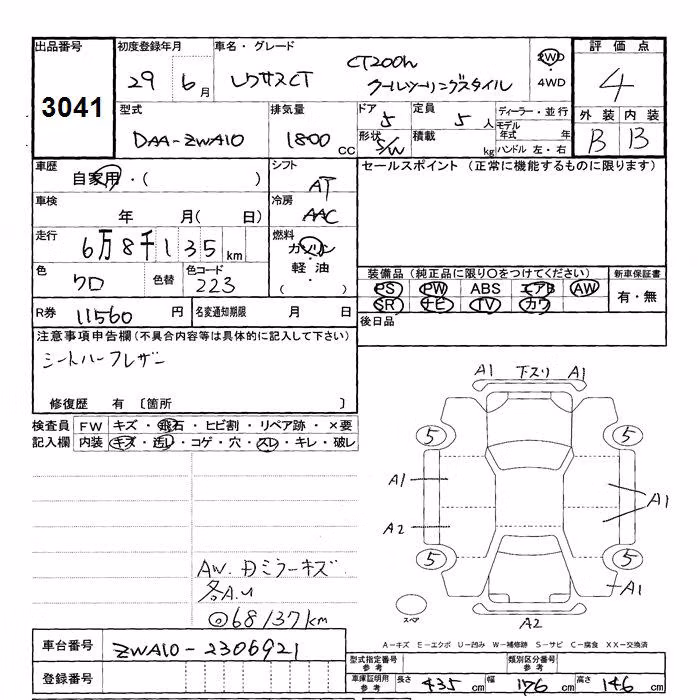 出品番号 初度登録年月 車名・グレード 評価点
3041 29 6月 レクサスCT CT200h 2WD・4WD 4
クールツーリングスタイル
型式 排気量 ドア 5 定員 5人 ディーラー・並行 外装 内装
DAA-ZWA10 1800cc 形状 S/W 積載 kg モデル年式 年 B B
ハンドル 左・右
車歴 自家用・( ) シフト AT セールスポイント (正常に機能するものに限ります)
車検 年 月( 日) 冷房 AAC
走行 6万8千135km 燃料 ガソリン・軽油・( )
色 クロ 色替 色コード 223 装備品 (純正品に限り○をつけてください) 新車保証書
PS PW ABS エアB AW 有・無
SR ナビ TV カワ
R券 11560円 名変通知期限 月 日 後日品
注意事項申告欄(不具合内容等は具体的に記入して下さい)
シートハーフレザー
修復歴 有 〔箇所 〕
検査員記入欄 FW キズ・飛石・ヒビ割・リペア跡・×要
内装 キズ・汚レ・コゲ・穴・スレ・キレ・破レ
A1 下スリ A1
5 5
A1 A1
A2
5 5
A1
スペア A2
AW.
ミラーキズ
各A.U
◎68137km
A-キズ E-エクボ U-凹み W-補修跡 S-サビ C-腐食 XX-交換済
車台番号 ZWA10-2306921
登録番号
型式指定番号参考 類別区分番号参考
車庫証明用参考 長さ 435cm 幅 176cm 高さ 146cm